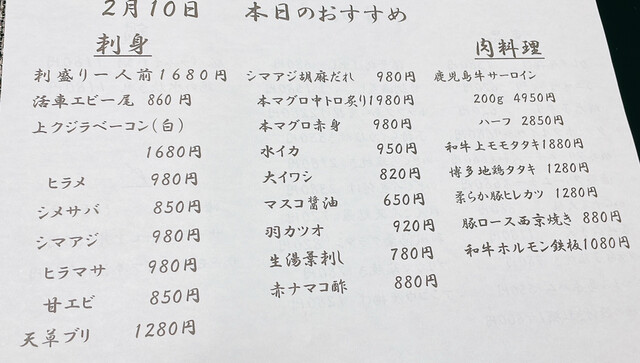 2月10日 本日のおすすめ
刺身
刺盛り一人前1680円
活車エビ一尾 860円
上クジラベーコン(白)
1680円
ヒラメ 980円
シメサバ 850円
シマアジ 980円
ヒラマサ 980円
甘エビ 850円
天草ブリ 1280円
シマアジ胡麻だれ 980円
本マグロ中トロ炙り1980円
本マグロ赤身 980円
水イカ 950円
大イワシ 820円
マスコ醬油 650円
羽カツオ 920円
生湯葉刺し 780円
赤ナマコ酢 880円
肉料理
鹿児島牛サーロイン
200g 4950円
ハーフ 2850円
和牛上モモタタキ1880円
博多地鶏タタキ 1280円
柔らか豚ヒレカツ 1280円
豚ロース西京焼き 880円
和牛ホルモン鉄板1080円